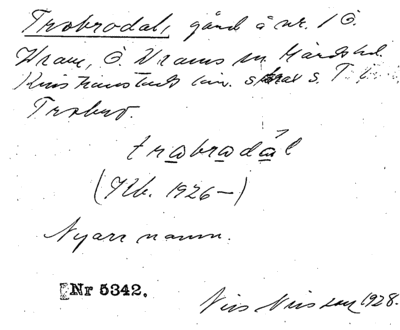 Trobrodal, gård å nr. 1 Ö.
Vram, Ö. Vrams sn. Härads hd.
Kristianstads län. strax s. T
Trobro.
trobrodál
(Kb. 1926–)
Nyare namn.
Nr 5342.
Nils Nilsson 1928.